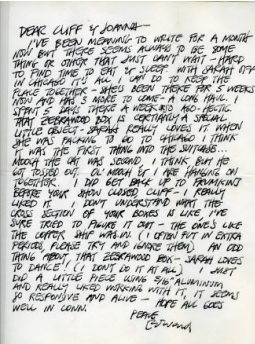 DEAR CLIFF Y JOANNA—
I'VE BEEN MEANING TO WRITE FOR A MONTH
NOW BUT THERE SEEMS ALWAYS TO BE SOME
THING OR OTHER THAT JUST CAN'T WAIT—HARD
TO FIND TIME TO EAT & SLEEP WITH SARAH OFF
IN CHICAGO IT'S ALL I CAN DO TO KEEP THE
PLACE TOGETHER—SHE'S BEEN THERE FOR 5 WEEKS
NOW AND HAS 5 MORE TO COME—A LONG HAUL. I
SPENT 5 DAYS THERE A WEEK AGO AND
THAT ZEBRAWOOD BOX IS CERTIANLY A SPECIAL
LITTLE OBJECT—SARAH REALLY LOVES IT WHEN
SHE WAS PACKING TO GO TO CHICAGO I THINK
IT WAS THE FIRST THING INTO THE SUITCASE...
MOOCH THE CAT WAS SECOND, I THINK BUT HE
GOT TOSSED OUT. OL' MOOCH & I ARE HANGING ON
TOGETHER. I DID GET BACK UP TO
BEFORE YOUR SHOW CLOSED, CLIFF—I REALLY
LIKED IT. I DON'T UNDERSTAND WHAT THE
CROSS SECTION OF YOUR BOXES IS LIKE, I'VE
SURE TRIED TO FIGURE IT OUT—THE ONE'S LIKE
THE COPPER SHIP WAS IN. (I OFTEN PUT IN EXTRA
PERIODS, PLEASE TRY AND IGNORE THEM) AN ODD
THING ABOUT THAT ZEBRAWOOD BOX—SARAH LOVES
TO DANCE! (I DON'T DO IT AT ALL) I JUST
DID A LITTLE PIECE USING 5/16" ALUMINIUM
AND REALLY LIKED WORKING WITH IT, IT SEEMS
SO RESPONSIVE AND ALIVE— HOPE ALL GOES
WELL IN CONN.
PEACE